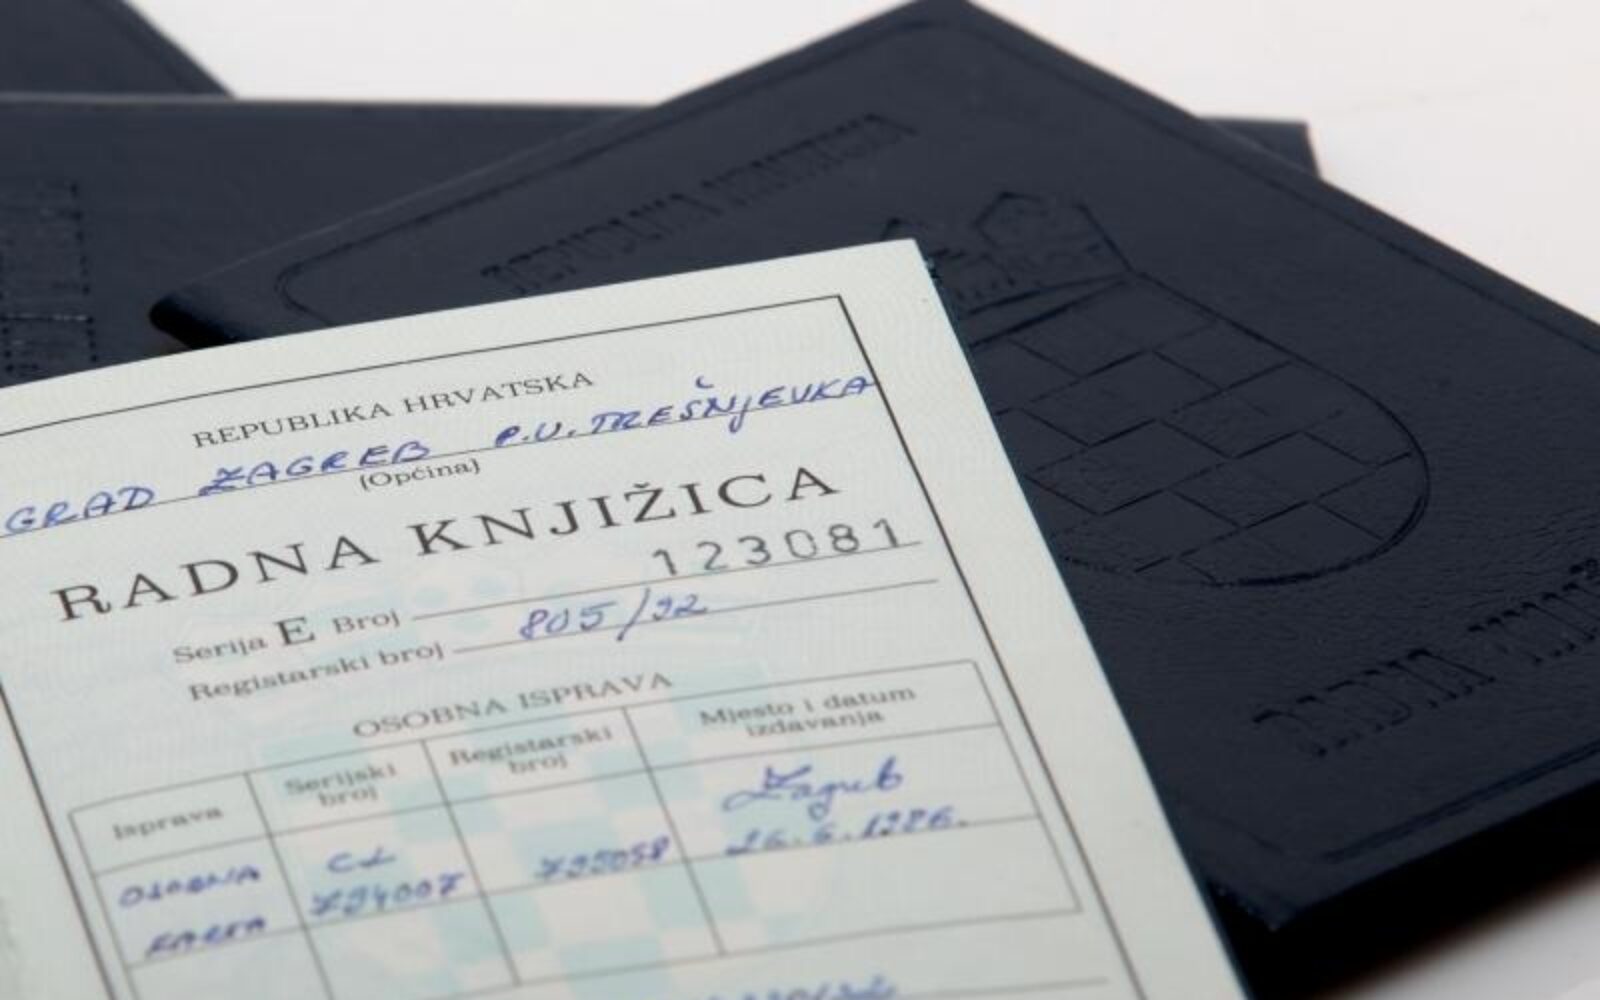 REPUBLIKA HRVATSKA
REPUBLIKA HRVATSKA
GRAD ZAGREB P.U. TREŠNJEVKA
(Općina)
RADNA KNJIŽICA
Serija E Broj 123081
Registarski broj 805/92
OSOBNA ISPRAVA
Isprava
Serijski broj
Registarski broj
Mjesto i datum izdavanja
OSOBNA KARTA
794007
795058
Zagreb
RADNA